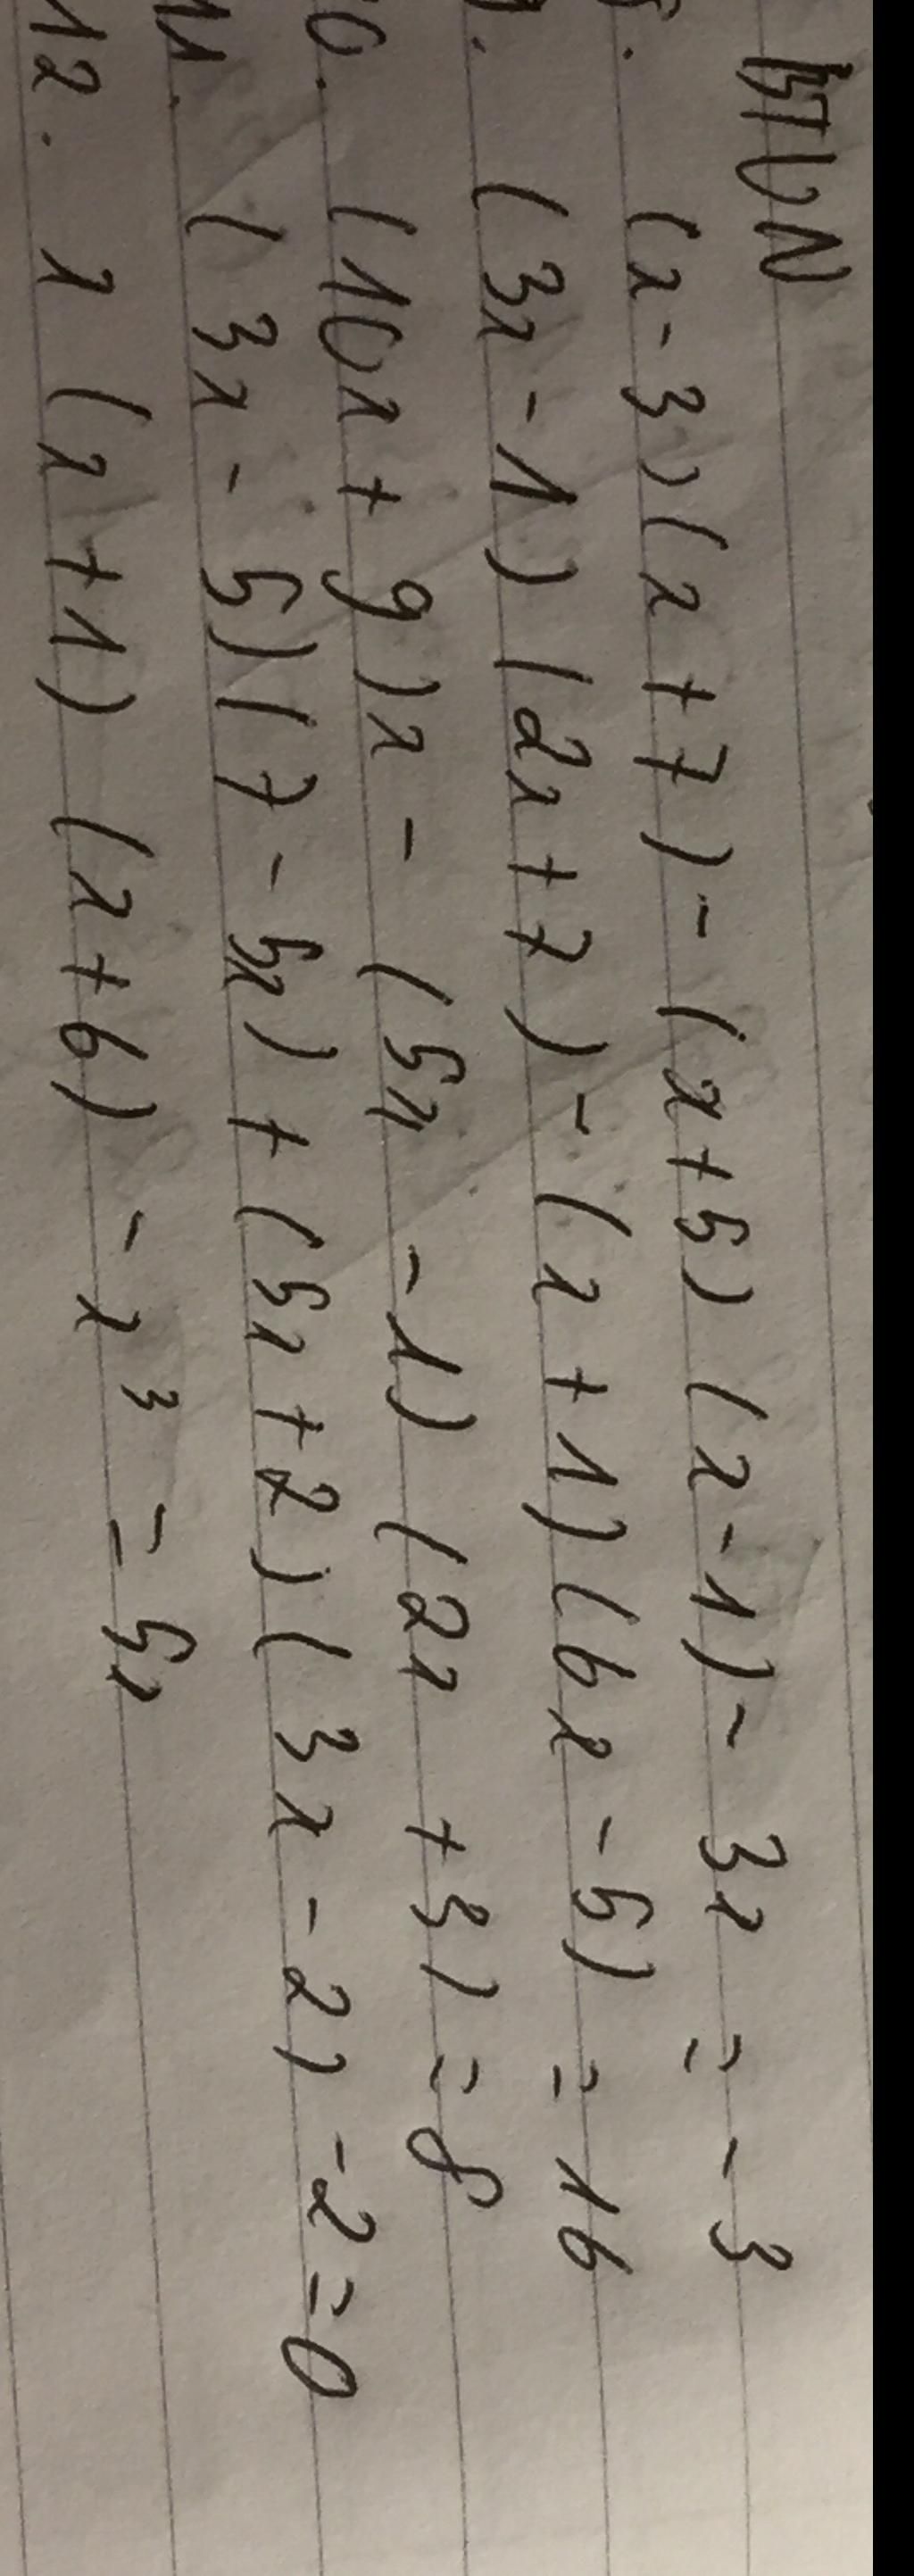 BTVN
8. (x-3)(x+7)-(x+5)(x-1)-3x = -3
9. (3x-1)(2x+7)-(x+1)(6x-5) = 16
10. (10x+9)x-(5x-1)(2x+3)=8
11. (3x-5)(7-5x)+(5x+2)(3x-2)-2=0
12. x(x+1)(x+6)-x³=5x